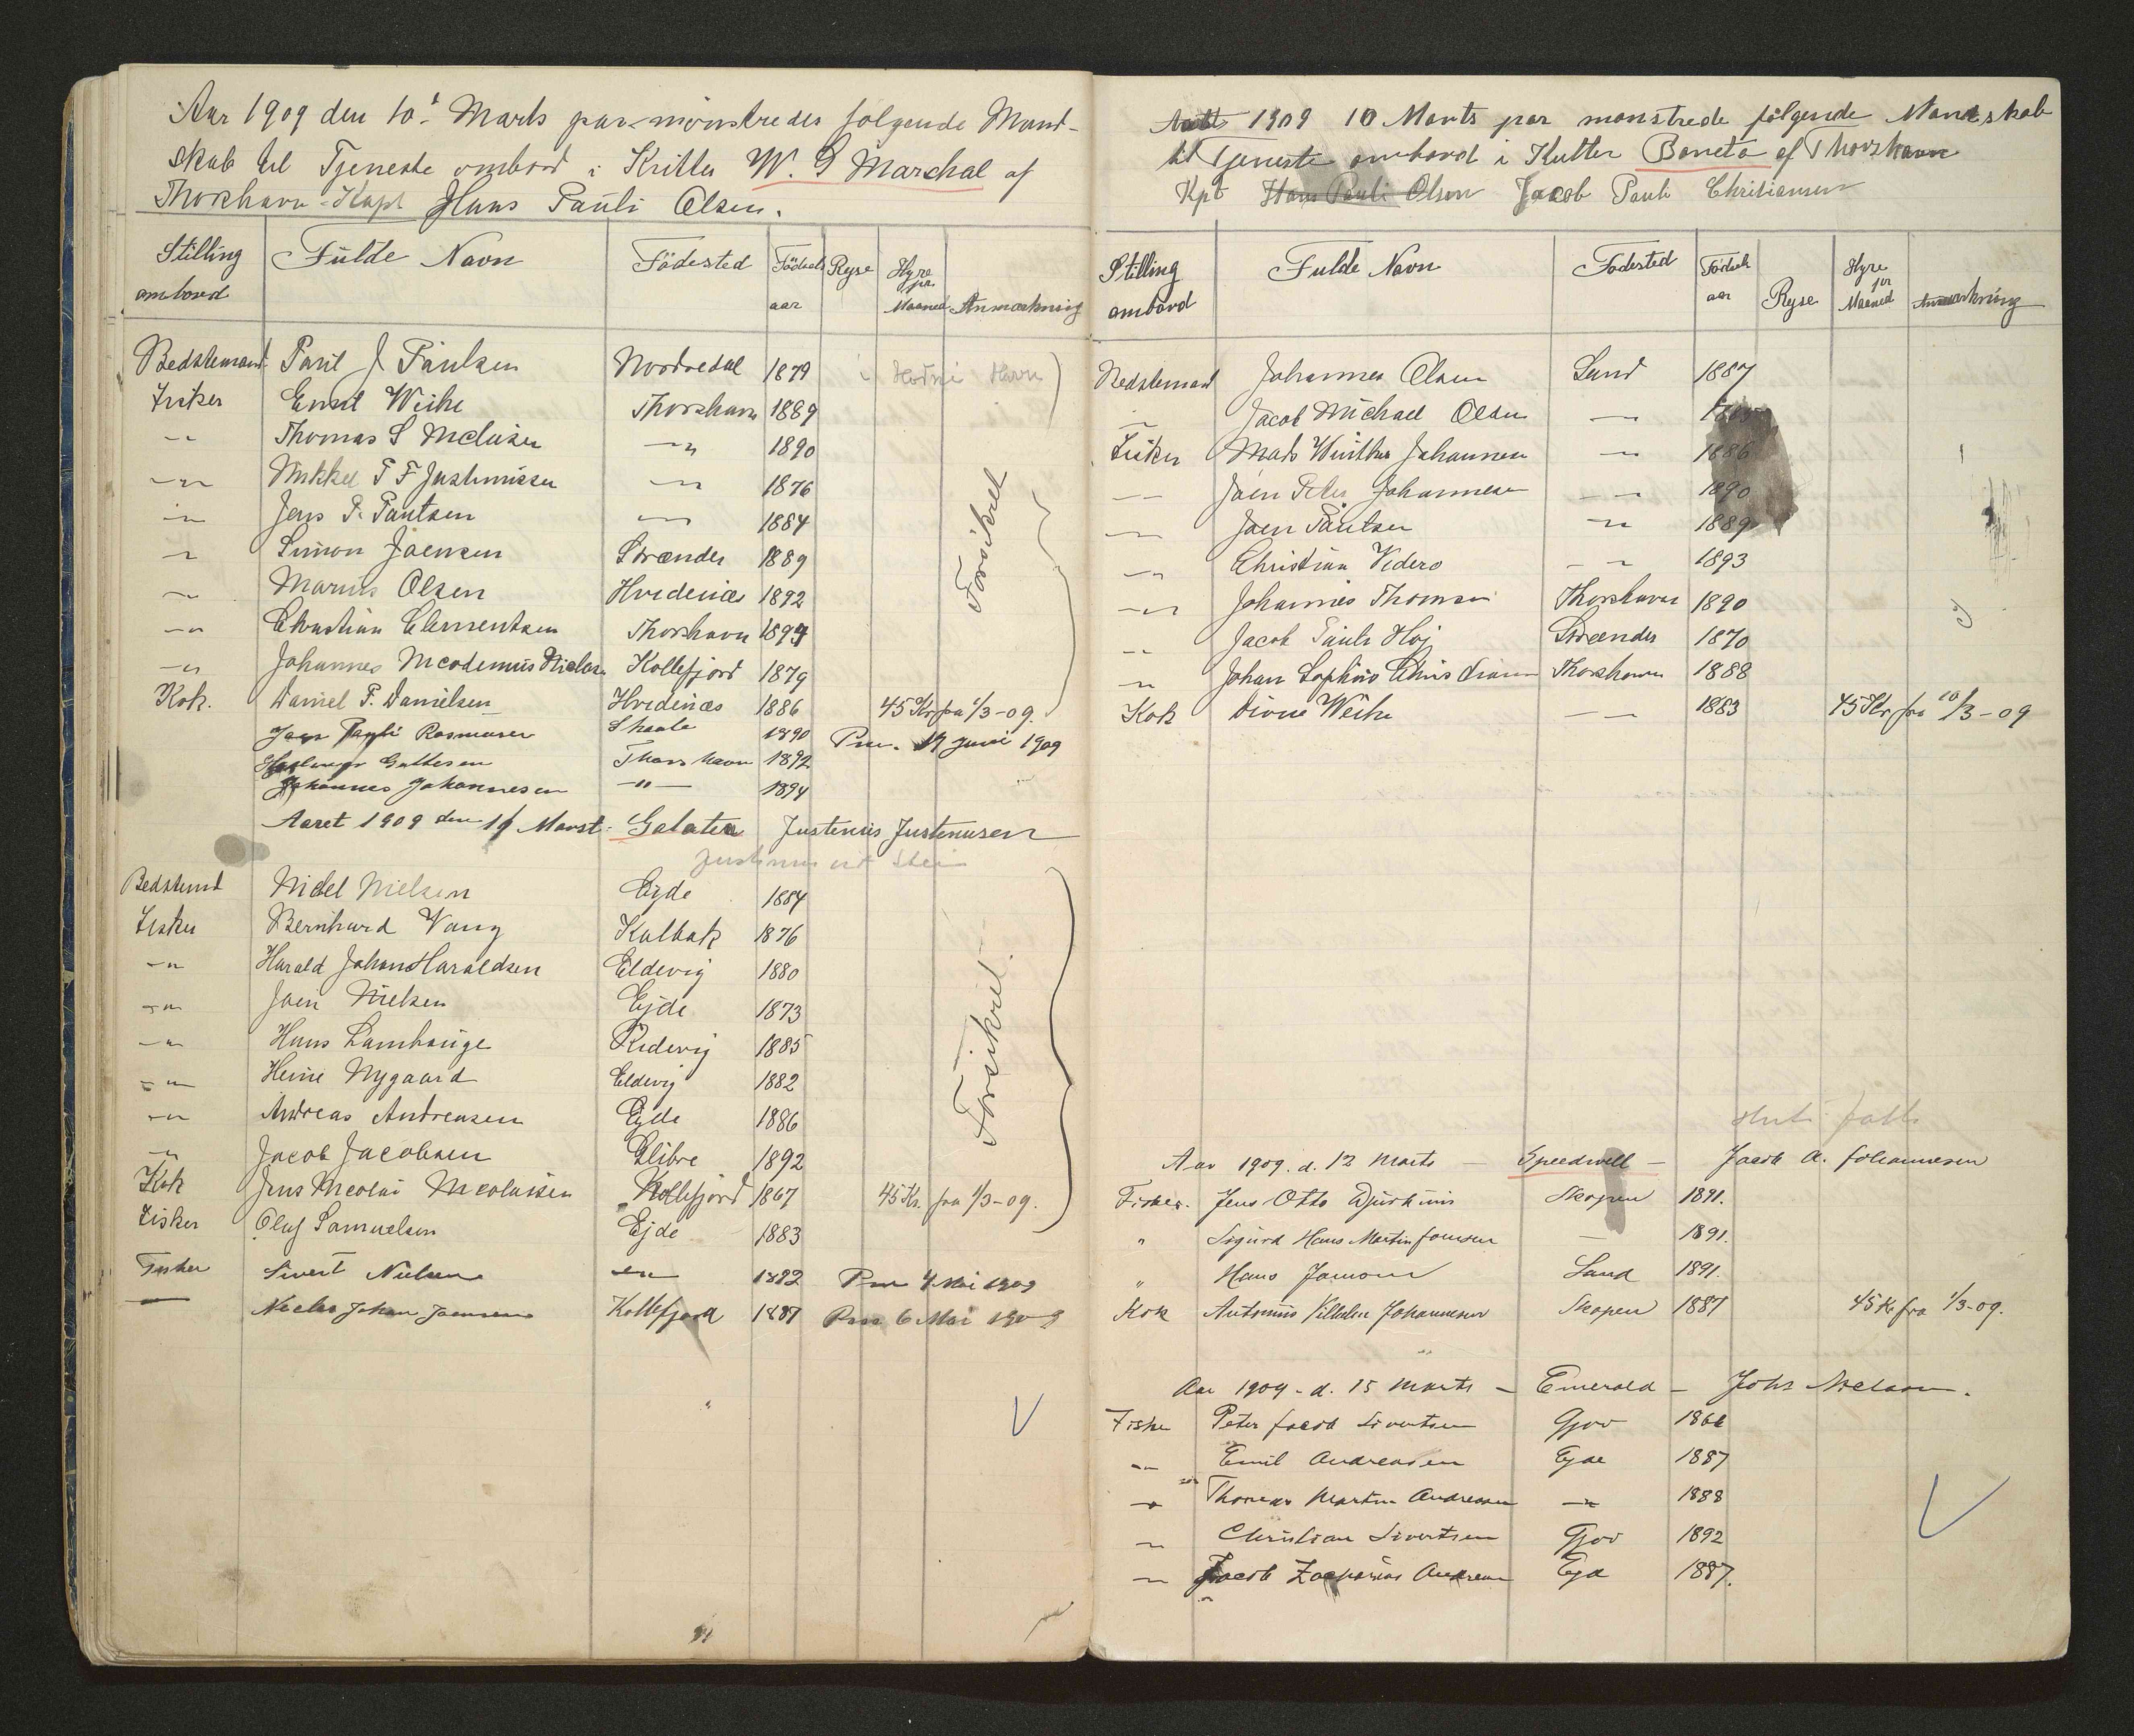 Aar 1909 den 10' Marts paa-mönstredes følgende Mand-
skab til Tjeneste ombord i Kutter W. G Marchal af
Thorshavn Kapt Hans Pauli Olsen.
Stilling ombord Fülde Navn Födested Födsels aar Ryse Hyre pr. Maaned Anmærkning
Bedstemand Paul J Paulsen Nordredal 1879
Fisker Ernst Weihe Thorshavn 1889
-"- Thomas S Melüsen -"- 1890
-"- Mikkel P F Justinussen -"- 1876
-"- Jens P. Pautsen -"- 1884 Forsikret
-"- Simon Joensen Strænder 1889
-"- Marius Olsen Hvidenæs 1892
-"- Christian Clementsen Thorshavn 1894
-"- Johannes Nicodemüs Niclas Kollefjord 1879
Kok. Daniel P. Danielsen Hvidenæs 1886 45 Kr fra 1/3-09.
Joen Pauli Rasmusen Skaale 1890 Pm. 17 Juni 1909
Guttesen Thorshavn 1892
Johannes Johannesen -"- 1894
Aaret 1909 den 11 Marst. Galatea Justenüs Justenusen
Bedstemd Nickel Nielsen Ejde 1884
Fisker Bernhard Vang Kalbak 1876
-"- Harald Johan Haraldsen Eldevig 1880
-"- Joen Nielsen Ejde 1873
-"- Hans Lamhauge Ridevig 1885 Forsikret
-"- Heine Nygaard Eldevig 1882
-"- Andreas Andreasen Ejde 1886
-"- Jacob Jacobsen Glibre 1892
Kok Jens Nicolai Nicolaisen Kollefjord 1867 45 Kr. fra 1/3-09.
Fisker Oluf Samuelsen Ejde 1883
Fisker Sivert Nielsen -"- 1892 Pm 4 Mai 1909
— Niclas Johan Joensen Kollefjord 1887 Pm 6 Mai 1909
1909 10 Marts paa mønstrede følgende Mandskab
til Tjeneste ombord i Kutter Boneta af Thorshavn
Kpt Hans Pauli Olsen Jacob Pauli Christiansen
Stilling ombord Fulde Navn Fødested Fødsels aar Ryse Hyre pr Maaned Anmærkning
Bedstemand Johannes Olsen Sand 1887
-"- Jacob Michael Olsen -"-
Fisker Mads Winther Johannesen -"- 1886
-"- Joen Peter Johannesen -"- 1890
-"- Joen Paulsen -"- 1889
-"- Christian Videro -"- 1893
-"- Johannes Thomsen Thorshavn 1890
-"- Jacob Paule Høj Strænder 1870
-"- Johan Sophus Christiansen Thorshavn 1888
Kok Dione Weihe -"- 1883 45 Kr. fra 10/3-09
Aar 1909. d. 12 Marts — Speedwell — Jacob A. Johannesen
Fisker. Jens Otto Djurhuus Skopen 1891.
" Sigurd Hans Martin Joensen — 1891.
" Hans Jamon Sand 1891.
Kok Antonius Vilhelm Johannesen Skopen 1887 45 Kr fra 1/3-09.
Aar 1909 - d. 15 Marts — Emerald — Johs Nielsen.
Fisker Peter Jacob Sivertsen Gjov 1866
-"- Emil Andreasen Ejde 1887
-"- Thomas Martin Andreasen -"- 1888
-"- Christian Sivertsen Gjov 1892
-"- Jacob Zacharias Andreasen Ejde 1887.